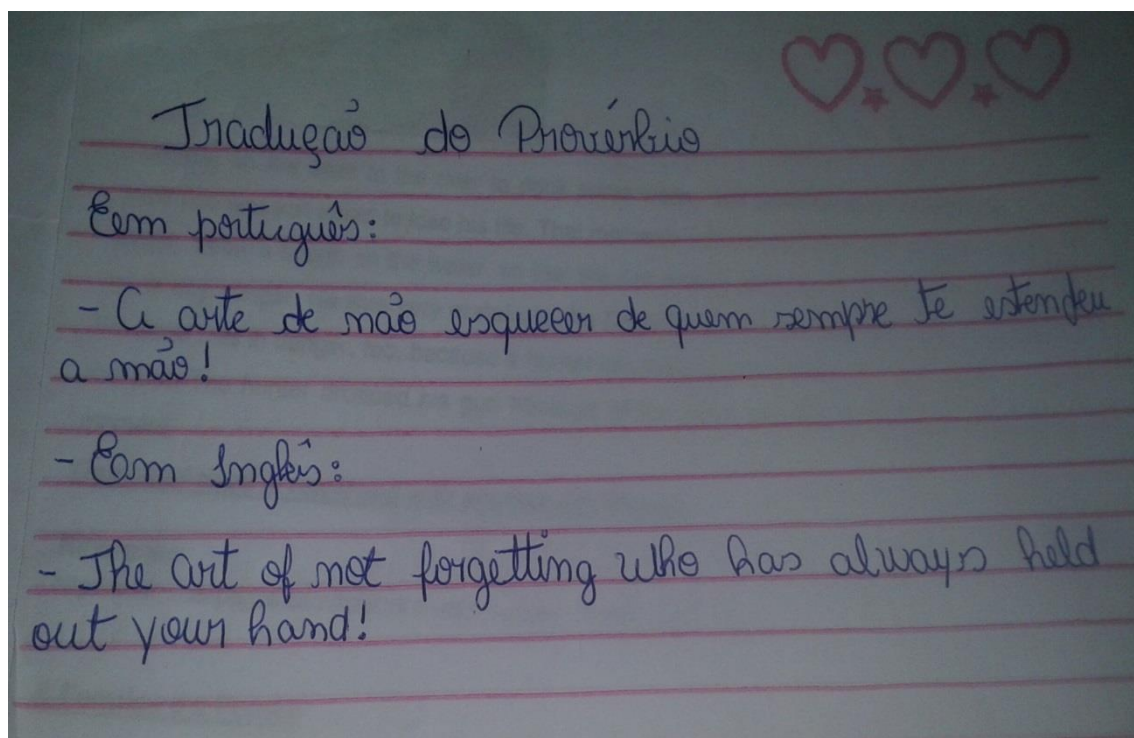 Tradução do Provérbio
Em português:
- A arte de não esquecer de quem sempre te estendeu
a mão!
- Em Inglês:
- The art of not forgetting who has always held
out your hand!